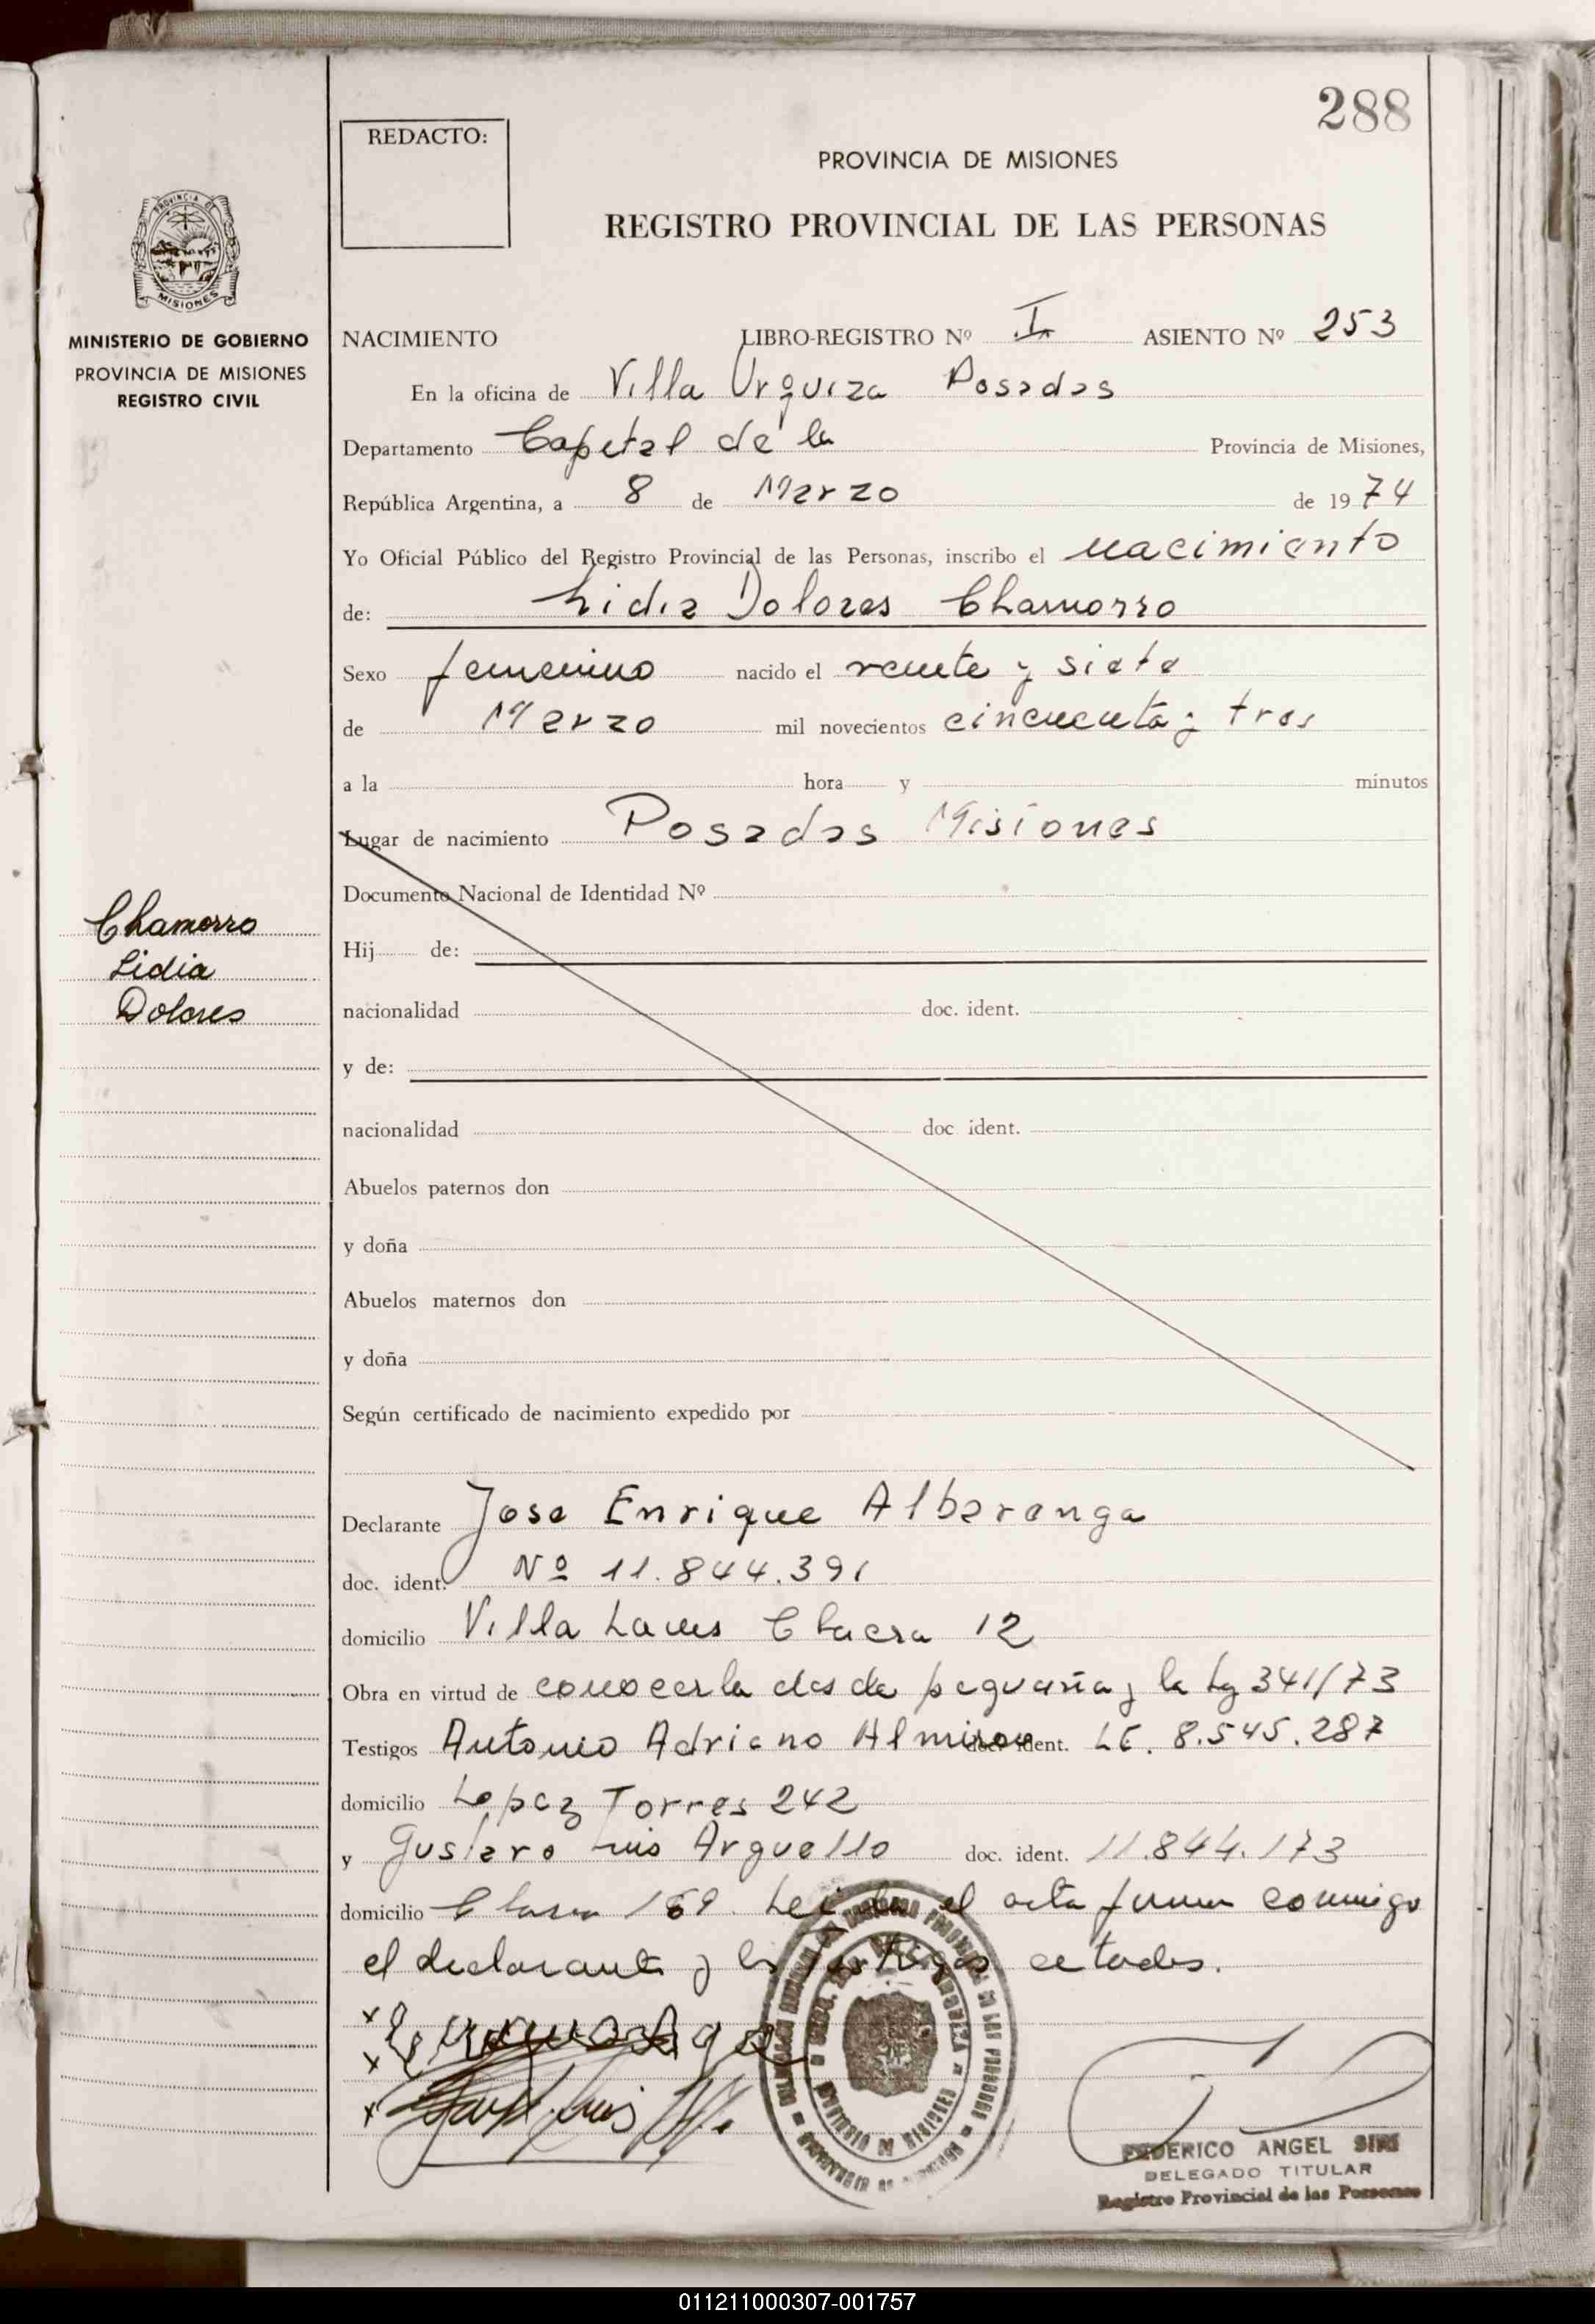 288
REDACTO:
PROVINCIA DE MISIONES
REGISTRO PROVINCIAL DE LAS PERSONAS
PROVINCIA DE
MISIONES
MINISTERIO DE GOBIERNO
PROVINCIA DE MISIONES
REGISTRO CIVIL
NACIMIENTO LIBRO-REGISTRO Nº I ASIENTO Nº 253
En la oficina de Villa Urquiza Posadas
Departamento Capital de la Provincia de Misiones,
República Argentina, a 8 de Marzo de 1974
Yo Oficial Público del Registro Provincial de las Personas, inscribo el nacimiento
de: Lidia Dolores Chamorro
Sexo femenino nacido el veinte y siete
de Marzo mil novecientos cincuenta y tres
a la hora y minutos
Lugar de nacimiento Posadas Misiones
Documento Nacional de Identidad Nº
Chamorro
Lidia
Dolores
Hij de:
nacionalidad doc. ident.
y de:
nacionalidad doc ident.
Abuelos paternos don
y doña
Abuelos maternos don
y doña
Según certificado de nacimiento expedido por
Declarante Jose Enrique Albarenga
doc. ident. Nº 11.844.391
domicilio Villa Lanus Chacra 12
Obra en virtud de conocerla desde pequeña y la Ley 341/73
Testigos Antonio Adriano Almiron doc. ident. LE. 8.545.287
domicilio Lopez Torres 242
y Gustavo Luis Arguello doc. ident. 11.844.173
domicilio Chacra 169. Leida el acta firman conmigo
el declarante y los testigos citados.
FEDERICO ANGEL SIRI
DELEGADO TITULAR
Registro Provincial de las Personas
011211000307-001757